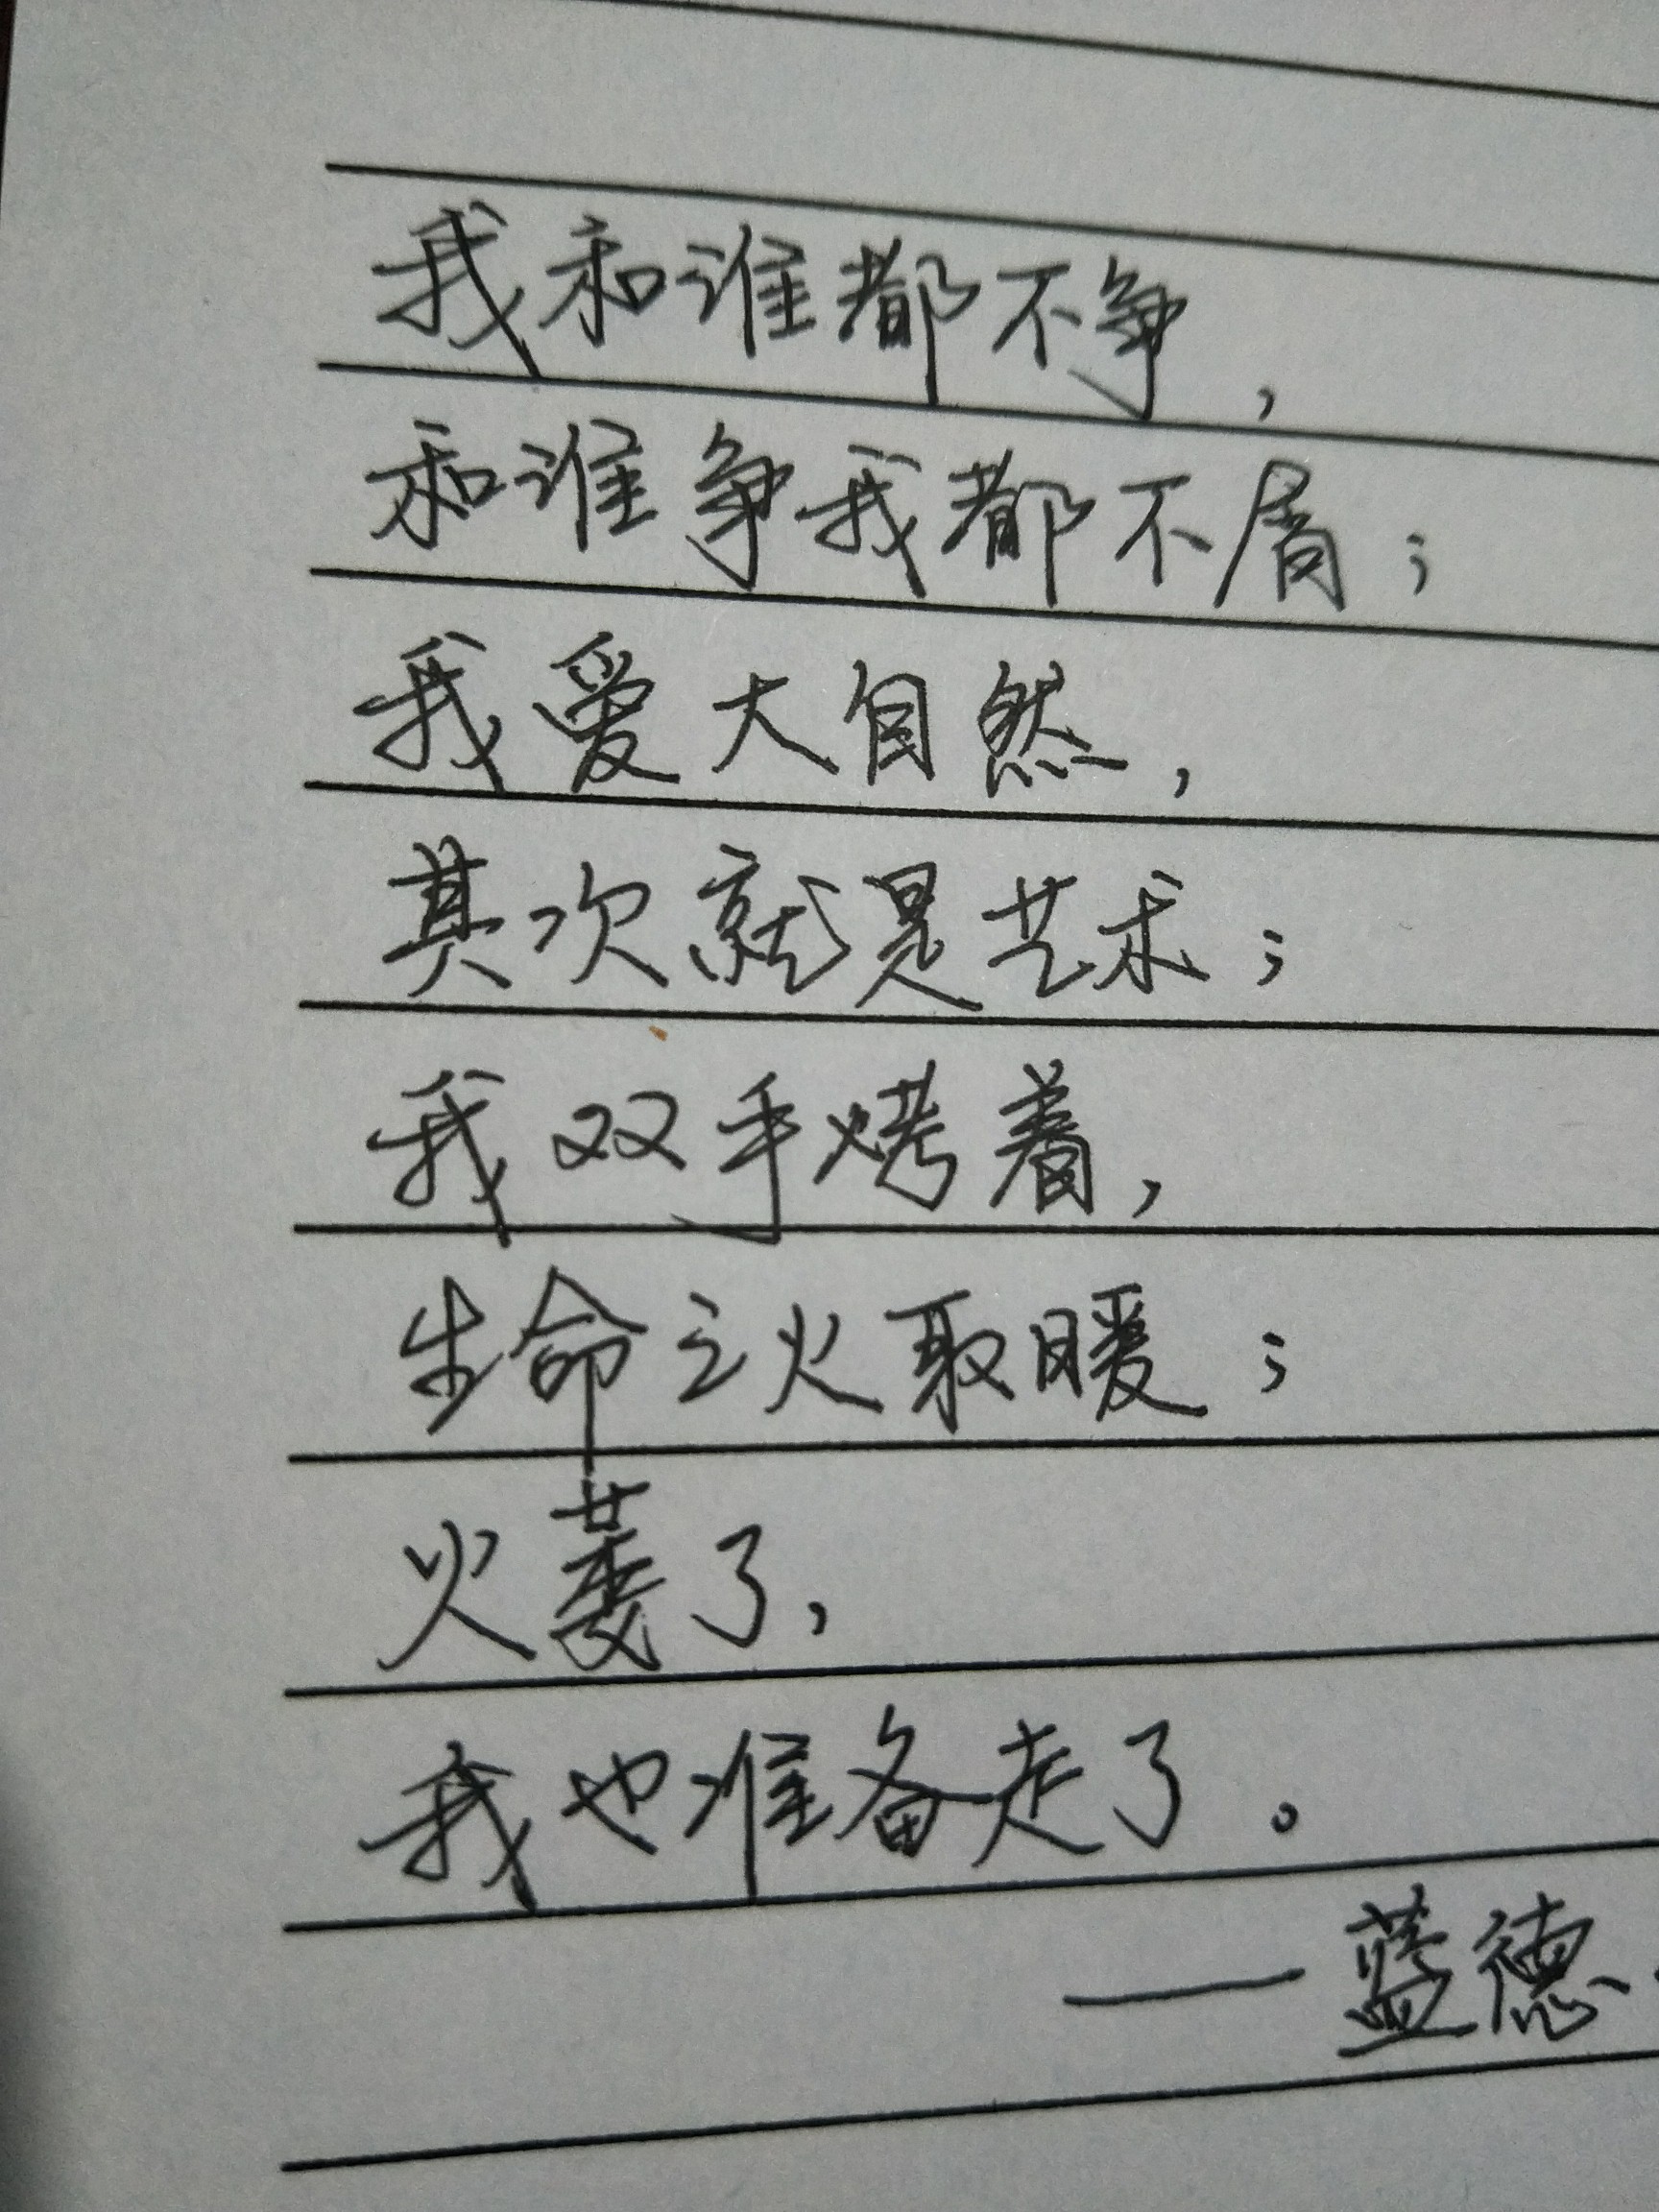 我和谁都不争，
和谁争我都不屑；
我爱大自然，
其次就是艺术；
我双手烤着，
生命之火取暖；
火萎了，
我也准备走了。
——蓝德